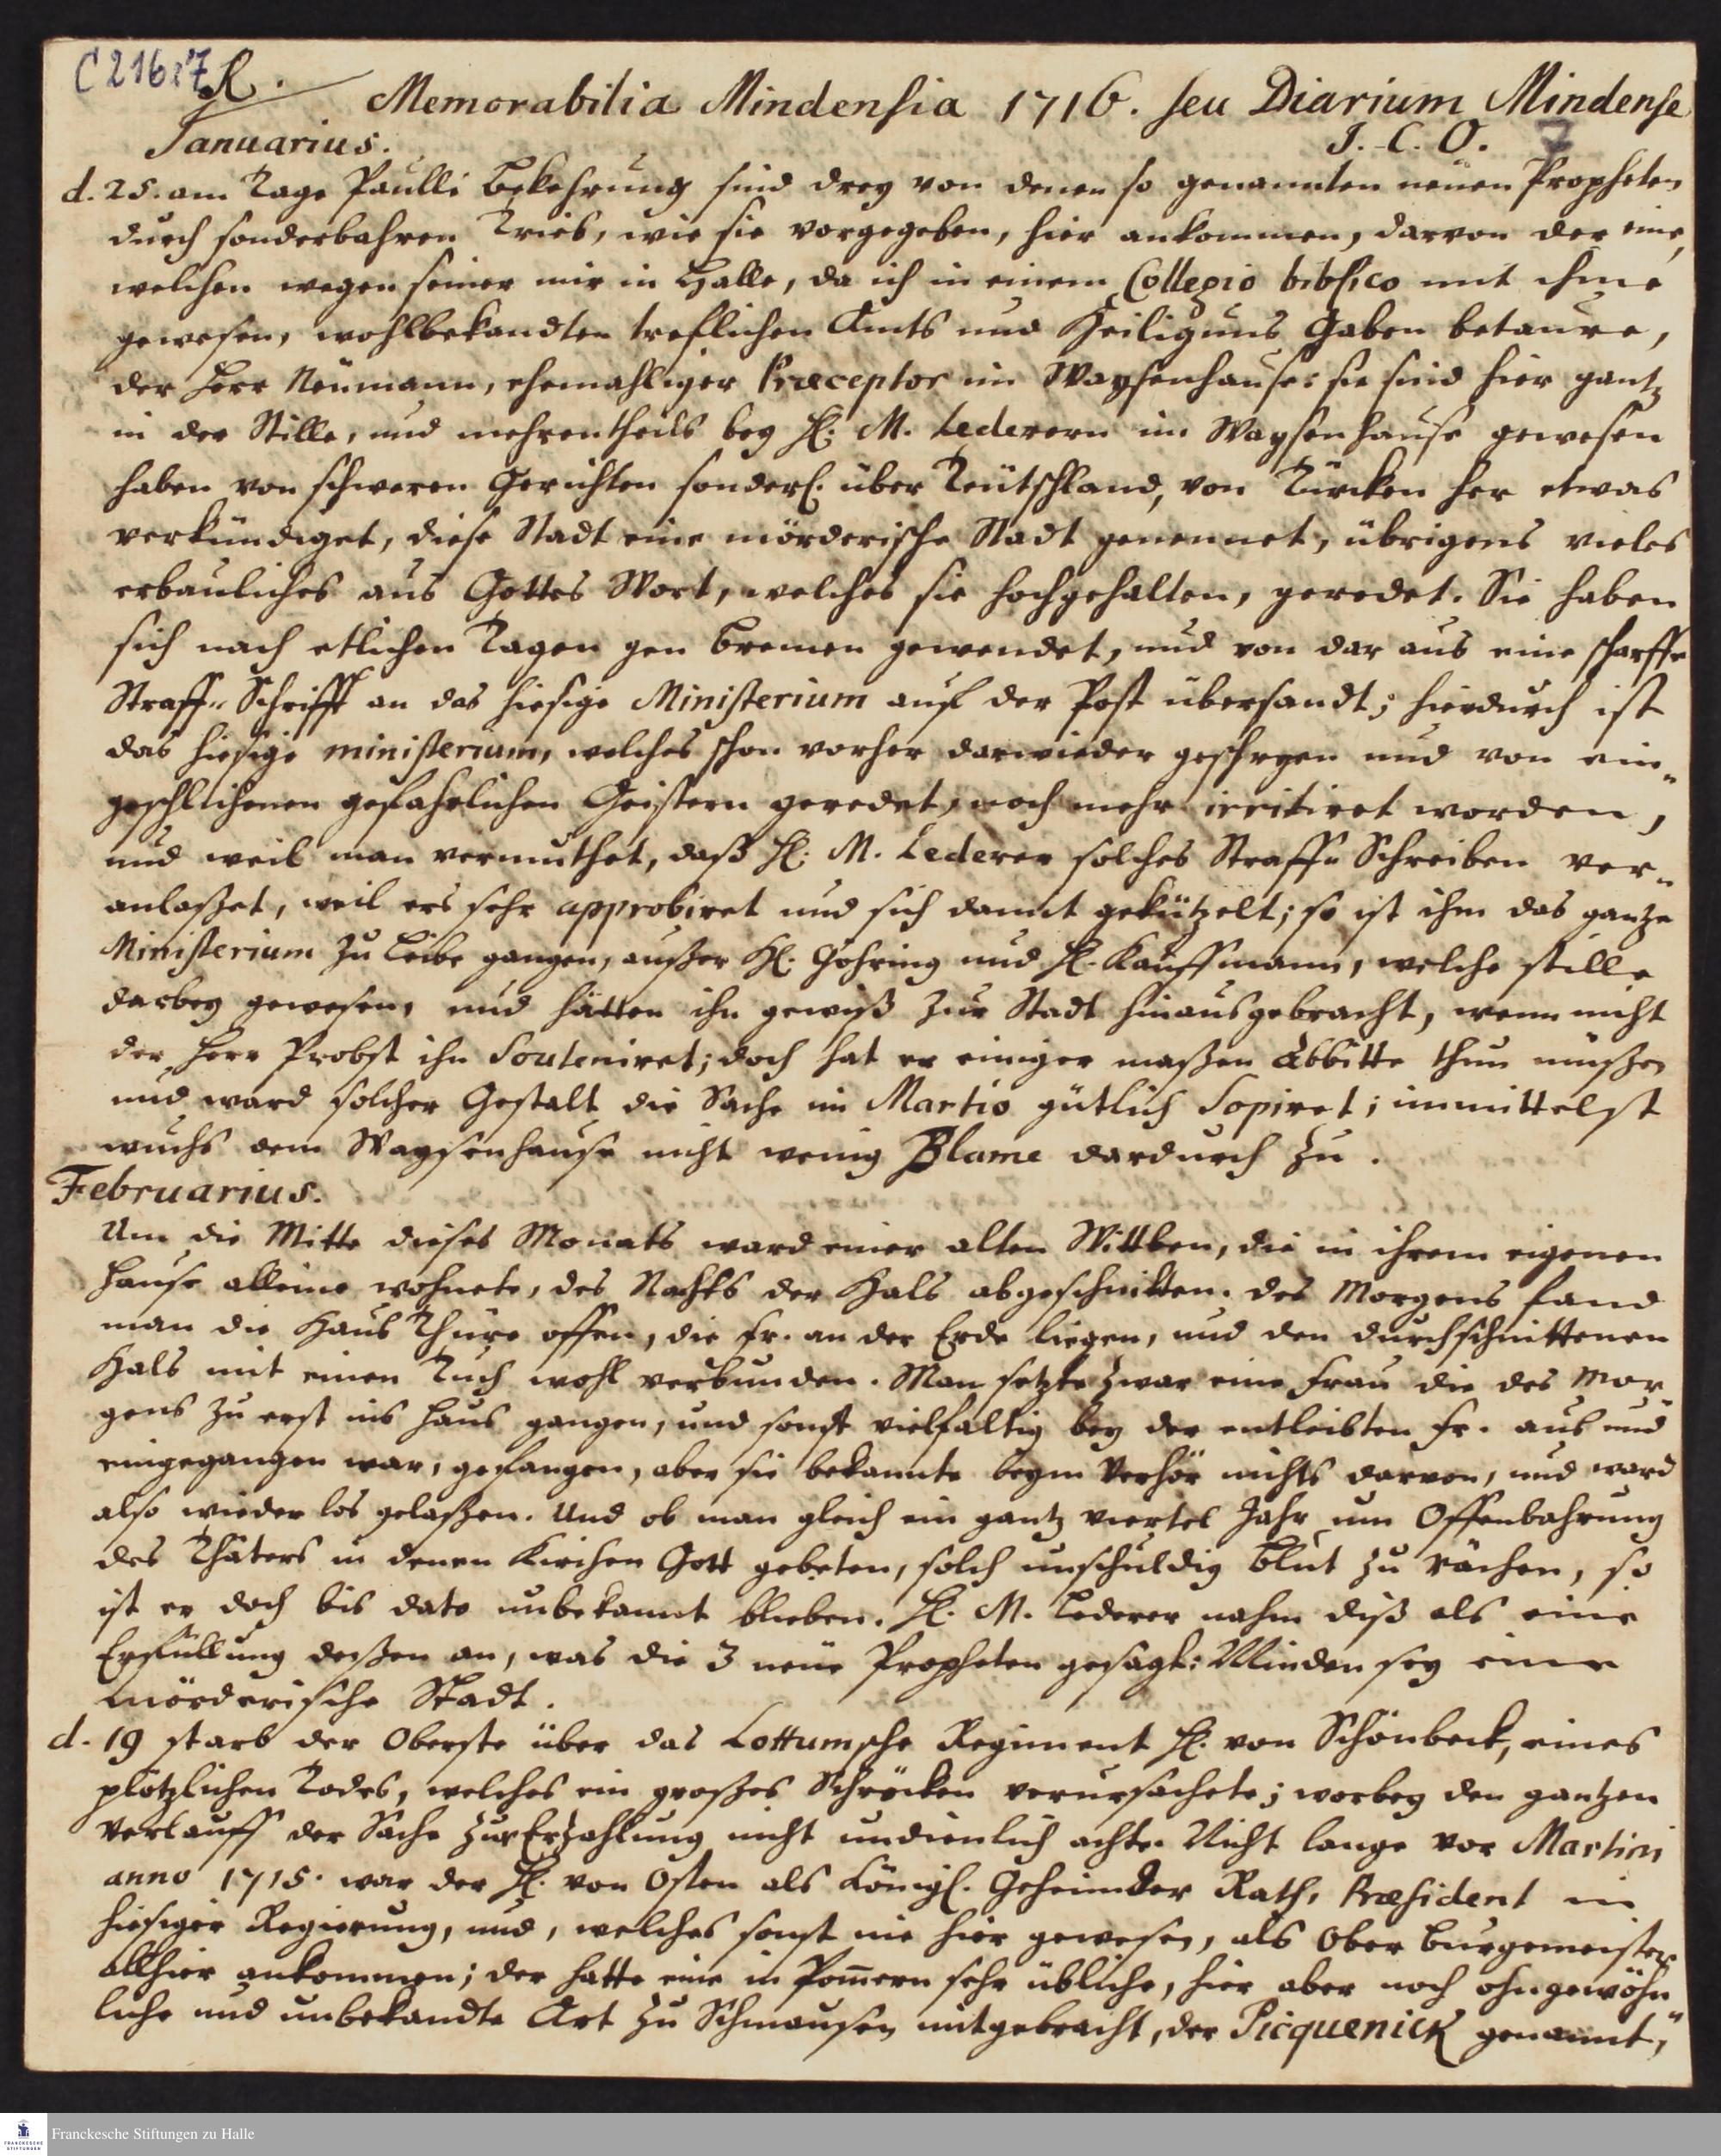 C 216:7
R.
Memorabilia Mindensia 1716. seu Diarium Mindense
Januarius. J. C. O. 7
d. 25. am Tage Paulli Bekehrung sind drey von denen so genannten neuen Propheten
durch sonderbahren Trieb, wie sie vorgegeben, hier ankommen, darvon der eine,
welchen wegen seiner mir in Halle, da ich in einem Collegio biblico mit ihme
gewesen, wohlbekandten treflichen Amts und Heiligungs Gaben betaure,
der Herr Neumann, ehemahliger Præceptor im Waysenhause: sie sind hier gantz
in der Stille, und mehrentheils bey H. M. Lederern im Waysenhause gewesen
haben von schweren Gerichten sonderl. über Teütschland, von Türcken her etwas
verkündiget, diese Stadt eine mörderische Stadt genennet, übrigens vieles
erbauliches aus Gottes Wort, welches sie hochgehalten, geredet. Sie haben
sich nach etlichen Tagen gen Bremen gewendet, und von dar aus eine scharffe
Straff-Schrifft an das hiesige Ministerium auf der Post übersandt; hierdurch ist
das hiesige ministerium, welches schon vorher darwieder geschryen und von ein-
geschlichenen gefährlichen Geistern geredet, noch mehr irritiret worden,
und weil man vermuthet, daß H. M. Lederer solches Straff-Schreiben ver-
anlaßet, weil ers sehr approbiret und sich damit gekützelt; so ist ihm das gantze
Ministerium zu Leibe gangen, außer H. Göhring und H. Kauffmann, welche stille
darbey gewesen, und hätten ihn gewiß zur Stadt hinausgebracht, wenn nicht
der Herr Probst ihn Souteniret; doch hat er einiger maßen Abbitte thun müßen
und ward solcher Gestalt die Sache im Martio gütlich Sopiret; immittelst
wuchs dem Waysenhause nicht wenig Blame dardurch zu.
Februarius.
Um die Mitte dieses Monats ward einer alten Wittben, die in ihrem eigenen
Hause alleine wohnete, des Nachts der Hals abgeschnitten. des Morgens fand
man die Haus Thüre offen, die Fr. an der Erde liegen, und den durchschnittenen
Hals mit einen Tuch wohl verbunden. Man setzte zwar eine Frau die des Mor-
gens zu erst ins Haus gangen, und sonst vielfältig bey der entleibten Fr. aus und
eingegangen war, gefangen, aber sie bekannte beym Verhör nichts darvon, und ward
also wieder los gelaßen. Und ob man gleich ein gantz viertel Jahr um Offenbahrung
des Thäters in denen Kirchen Gott gebeten, solch unschuldig Blut zu rächen, so
ist er doch bis dato unbekannt blieben. H. M. Lederer nahm diß als eine
Erfüllung deßen an, was die 3 neüe Propheten gesagt: Minden sey eine
mörderische Stadt.
d. 19 starb der Oberste über das Lottumsche Regiment H. von Schönbeck, eines
plötzlichen Todes, welches ein großes Schröcken verursachete; worbey den gantzen
Verlauff der Sache zur Erzahlung nicht undienlich achte. Nicht lange vor Martini
anno 1715. war der H. von Osten als Königl. Geheimder Rath, Præsident in
hiesiger Regierung, und, welches sonst nie hier gewesen, als Ober Burgemeister
allhier ankommen; der hatte eine in Pom̅ern sehr übliche, hier aber noch ohngewöhn-
liche und unbekandte Art zu Schmausen mitgebracht, der Picquenick genannt,
Franckesche Stiftungen zu Halle